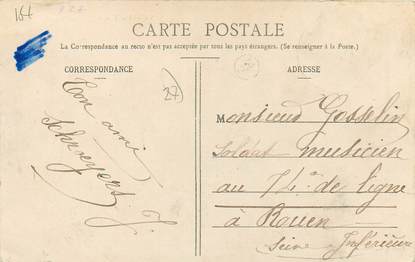 164
CARTE POSTALE
La Correspondance au recto n'est pas acceptée par tous les pays étrangers. (Se renseigner à la Poste.)
CORRESPONDANCE
ADRESSE
27
Ton ami
J.
Monsieur Gosselin
soldat musicien
au 74e de ligne
à Rouen
Seine Inférieure